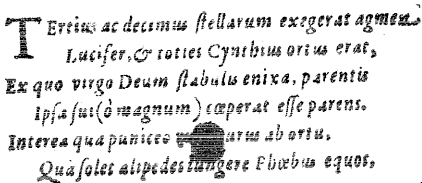 Tertius ac decimus ſtellarum exegerat agmen
Lucifer, & toties Cynthius ortus erat,
Ex quo virgo Deum ſtabulis enixa, parentis
Ipſa ſui (ò magnum) cœperat eſſe parens.
Interea qua puniceo ab ortu,
Quà ſolet alipedes iungere Phœbus equos,